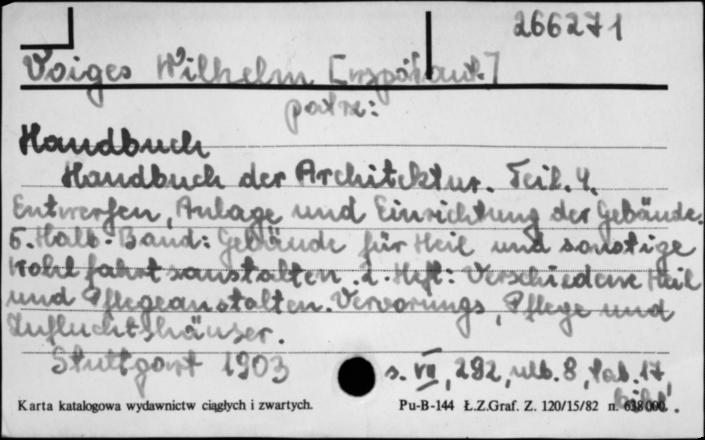 266271
Voiges Wilhelm [współaut.]
patrz:
Handbuch
Handbuch der Architektur. Teil. 4.
Entwerfen, Anlage und Einrichtung der Gebäude.
5. Halb-Band: Gebäude für Heil und sonstige
Wohlfahrtsanstalten. 2. Heft: Verschiedene Heil
und Pflegeanstalten. Versorungs, Pflege und
Zufluchtshäuser.
Stuttgart 1903 s. VII, 292, ulb. 8, tab. 17,
Karta katalogowa wydawnictw ciągłych i zwartych. Pu-B-144 Ł.Z.Graf. Z. 120/15/82 n. 638000.